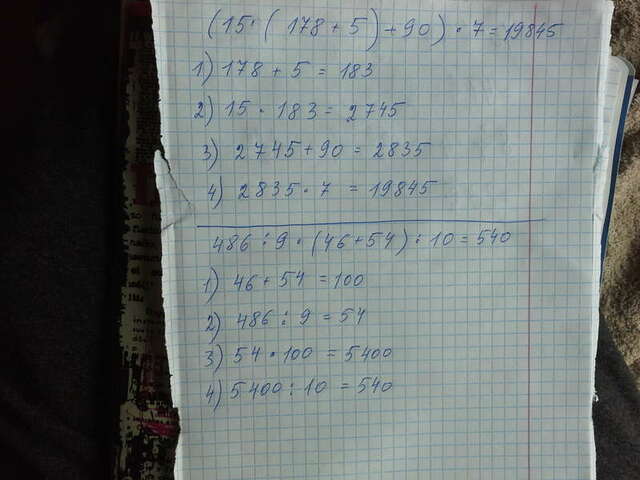 (15 · (178 + 5) + 90) · 7 = 19845
1) 178 + 5 = 183
2) 15 · 183 = 2745
3) 2745 + 90 = 2835
4) 2835 · 7 = 19845
486 : 9 · (46 + 54) : 10 = 540
1) 46 + 54 = 100
2) 486 : 9 = 54
3) 54 · 100 = 5400
4) 5400 : 10 = 540